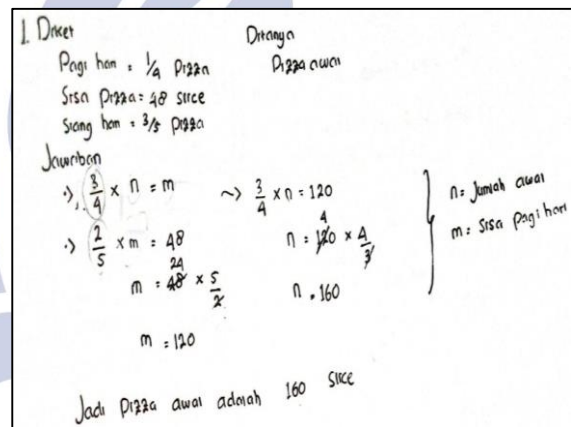 1. Diket
Pagi hari = 1/4 Pizza
Sisa Pizza = 48 slice
Siang hari = 3/5 Pizza
Ditanya
Pizza awal
Jawaban
·) 3/4 × n = m
·) 2/5 × m = 48
m = 48 × 5/2
24
m = 120
~) 3/4 × n = 120
n = 120 × 4/3
4
n = 160
n = Jumlah awal
m = Sisa pagi hari
Jadi Pizza awal adalah 160 slice